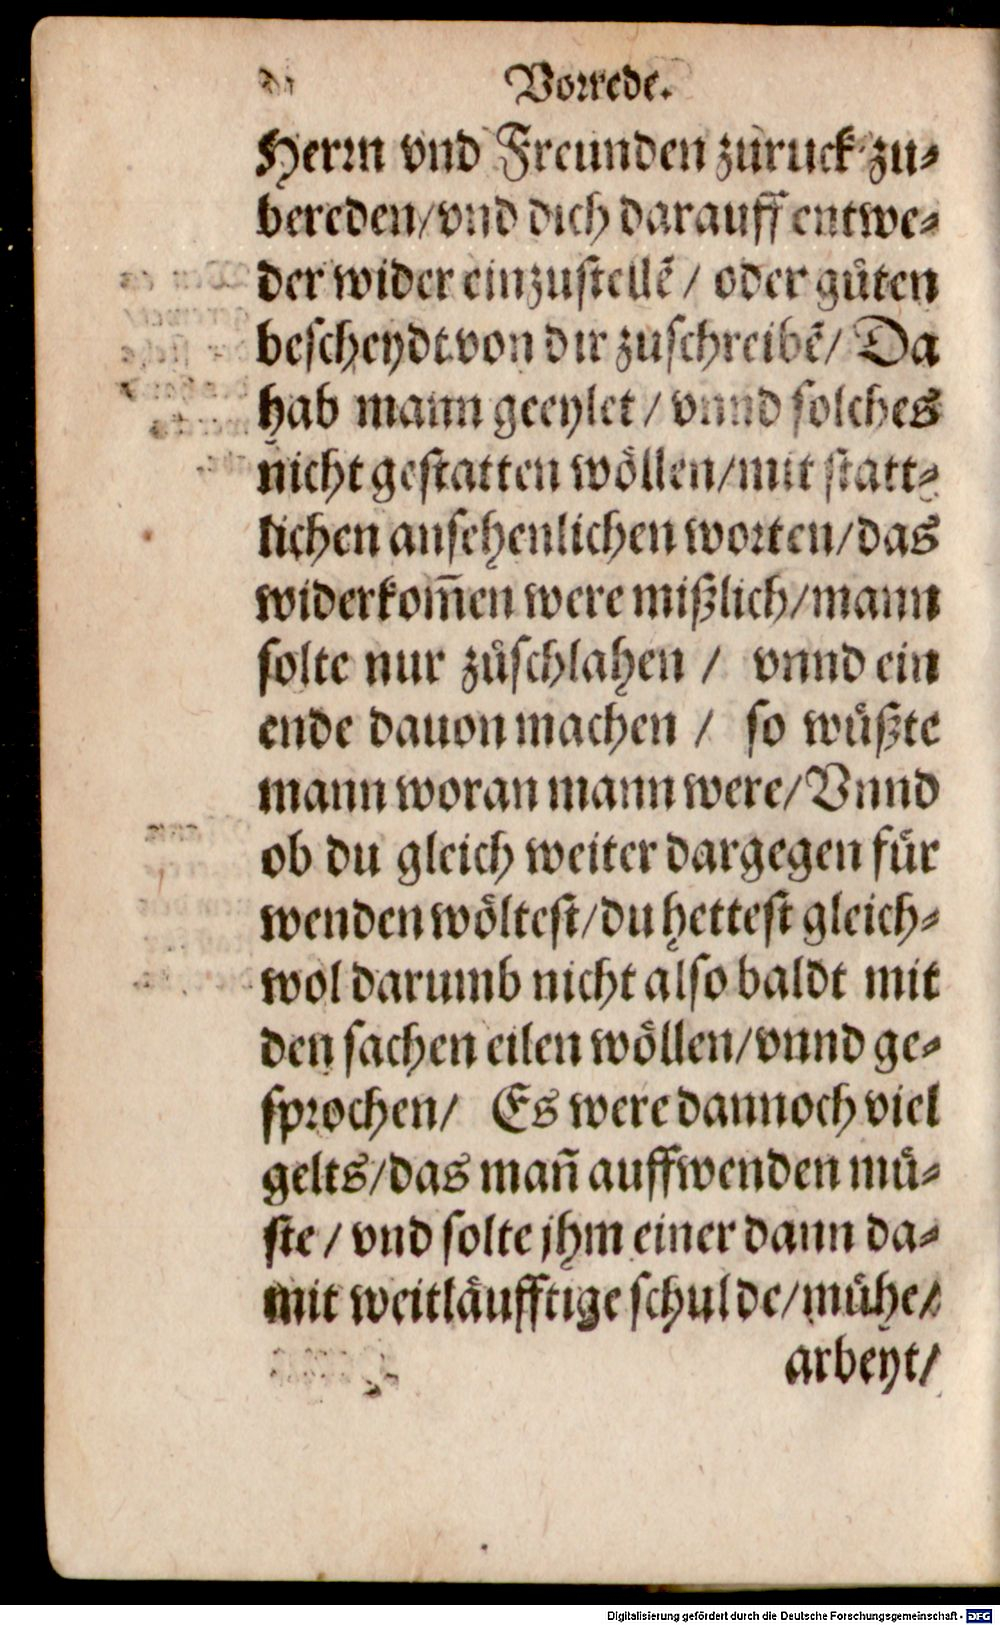 Vorrede.
Herrn vnd Freunden zuruck zu⸗
bereden/vnd dich darauff entwe⸗
der wider einzustellẽ / oder gůten
bescheydt von dir zuschreibẽ/ Da
hab mann geeylet / vnnd solches
nicht gestatten wöllen/mit statt⸗
lichen ansehenlichen worten/das
widerkom̃en were mißlich/mann
solte nur zůschlahen / vnnd ein
ende dauon machen / so wüßte
mann woran mann were/ Vnnd
ob du gleich weiter dargegen für
wenden wöltest/du hettest gleich⸗
wol darumb nicht also baldt mit
den sachen eilen wöllen/vnnd ge⸗
sprochen/ Es were dannoch viel
gelts/das man̄ auffwenden mü⸗
ste / vnd solte jhm einer dann da⸗
mit weitläufftige schulde/mühe/
arbeyt/
Digitalisierung gefördert durch die Deutsche Forschungsgemeinschaft - DFG